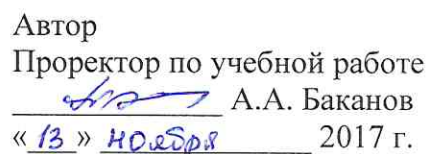 Автор
Проректор по учебной работе
А.А. Баканов
«13» ноября 2017 г.